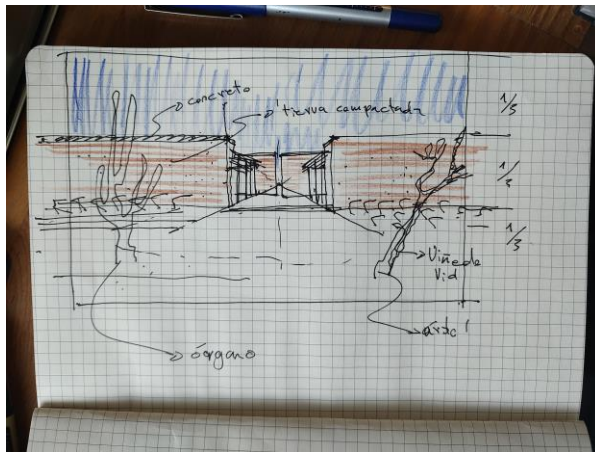 concreto
tierra compactada
1/3
1/3
1/3
Viñedo
Vid
órgano